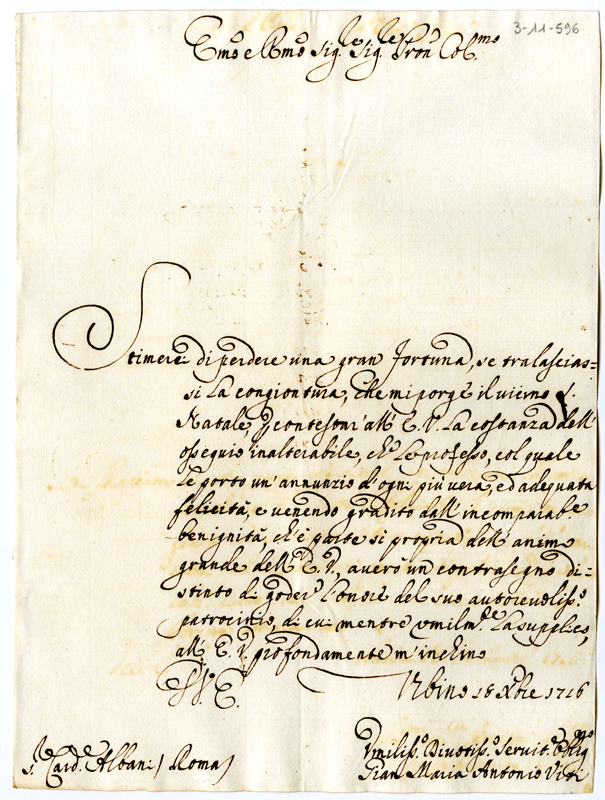 3-11-596
Emo e Rmo Sig.re Sig.re Pron Col.mo
Stimerei di perdere una gran fortuna, se tralascias=
si la congiontura, che mi porge il vicino S.
Natale, p contestar' all' E. V. la costanza dell'
ossequio inalterabile, che le professo, col quale
le porto un' annunzio d'ogni più vera, ed adequata
felicità, e venendo gradito dall' incomparabe
benignità, ch'è parte si propria dell' animo
grande dell' E. V., averò un contrasegno di=
stinto di goder l'onore del suo autorevoliss.o
patrocinio, di cui mentre umilm.te la supplico,
all' E. V. profondamente m'inchino
Urbino 16 Xbre 1716
S.r Card.le Albani / Roma /
Umiliss.o Divotiss.o Servit.e Oblig.o
Gian Maria Antonio Viti